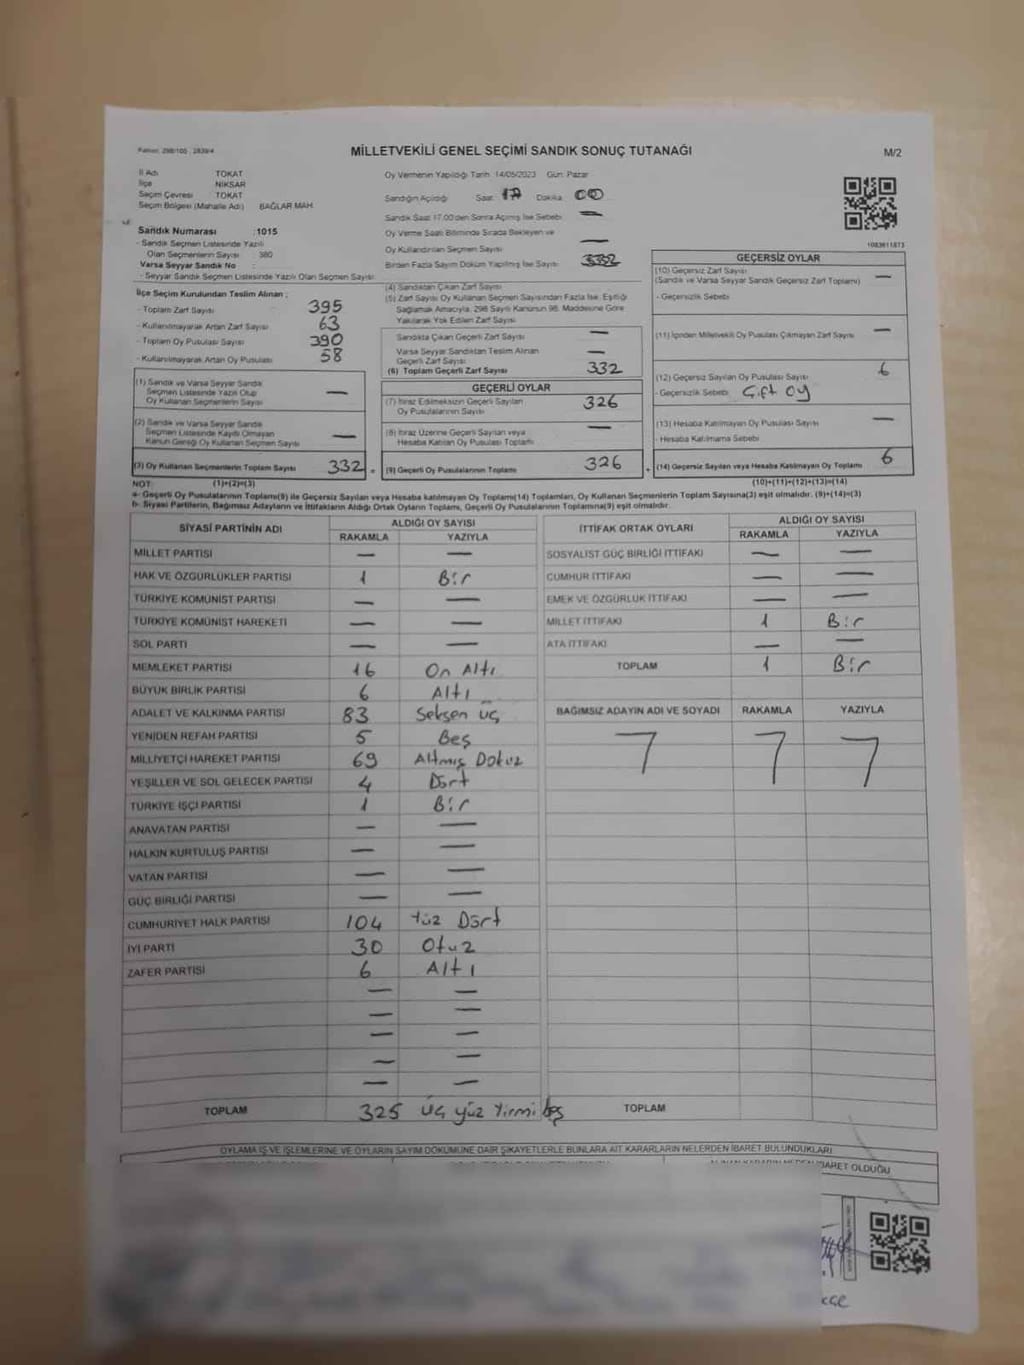 Kanun: 298/105 , 2839/4
MİLLETVEKİLİ GENEL SEÇİMİ SANDIK SONUÇ TUTANAĞI
M/2
İl Adı TOKAT
İlçe NİKSAR
Seçim Çevresi TOKAT
Seçim Bölgesi (Mahalle Adı) BAĞLAR MAH.
Sandık Numarası :1015
- Sandık Seçmen Listesinde Yazılı
Olan Seçmenlerin Sayısı : 380
Varsa Seyyar Sandık No :
- Seyyar Sandık Seçmen Listesinde Yazılı Olan Seçmen Sayısı:
Oy Vermenin Yapıldığı Tarih: 14/05/2023 Gün: Pazar
Sandığın Açıldığı Saat: 17 Dakika: 00
Sandık Saat 17.00'den Sonra Açılmış İse Sebebi: —
Oy Verme Saati Bitiminde Sırada Bekleyen ve
Oy Kullandırılan Seçmen Sayısı —
Birden Fazla Sayım Döküm Yapılmış İse Sayısı:
1083611873
İlçe Seçim Kurulundan Teslim Alınan ;
- Toplam Zarf Sayısı 395
- Kullanılmayarak Artan Zarf Sayısı 63
- Toplam Oy Pusulası Sayısı 390
- Kullanılmayarak Artan Oy Pusulası 58
(1) Sandık ve Varsa Seyyar Sandık
Seçmen Listesinde Yazılı Olup
Oy Kullanan Seçmenlerin Sayısı —
(2) Sandık ve Varsa Seyyar Sandık
Seçmen Listesinde Kayıtlı Olmayan
Kanun Gereği Oy Kullanan Seçmen Sayısı —
(3) Oy Kullanan Seçmenlerin Toplam Sayısı 332
(4) Sandıktan Çıkan Zarf Sayısı 332
(5) Zarf Sayısı Oy Kullanan Seçmen Sayısından Fazla İse, Eşitliği
Sağlamak Amacıyla, 298 Sayılı Kanunun 98. Maddesine Göre
Yakılarak Yok Edilen Zarf Sayısı
Sandıkta Çıkan Geçerli Zarf Sayısı —
Varsa Seyyar Sandıktan Teslim Alınan
Geçerli Zarf Sayısı —
(6) Toplam Geçerli Zarf Sayısı 332
GEÇERLİ OYLAR
(7) İtiraz Edilmeksizin Geçerli Sayılan
Oy Pusulalarının Sayısı 326
(8) İtiraz Üzerine Geçerli Sayılan veya
Hesaba Katılan Oy Pusulası Toplamı —
= (9) Geçerli Oy Pusulalarının Toplamı 326
GEÇERSİZ OYLAR
(10) Geçersiz Zarf Sayısı
(Sandık ve Varsa Seyyar Sandık Geçersiz Zarf Toplamı) —
- Geçersizlik Sebebi:
(11) İçinden Milletvekili Oy Pusulası Çıkmayan Zarf Sayısı —
(12) Geçersiz Sayılan Oy Pusulası Sayısı 6
- Geçersizlik Sebebi: Çift oy
(13) Hesaba Katılmayan Oy Pusulası Sayısı —
- Hesaba Katılmama Sebebi:
+ (14) Geçersiz Sayılan veya Hesaba Katılmayan Oy Toplamı 6
NOT: (1)+(2)=(3) (10)+(11)+(12)+(13)=(14)
a- Geçerli Oy Pusulalarının Toplamı(9) ile Geçersiz Sayılan veya Hesaba katılmayan Oy Toplamı(14) Toplamları, Oy Kullanan Seçmenlerin Toplam Sayısına(3) eşit olmalıdır. (9)+(14)=(3)
b- Siyasi Partilerin, Bağımsız Adayların ve İttifakların Aldığı Ortak Oyların Toplamı, Geçerli Oy Pusulalarının Toplamına(9) eşit olmalıdır.
SİYASİ PARTİNİN ADI ALDIĞI OY SAYISI
RAKAMLA YAZIYLA
MİLLET PARTİSİ — —
HAK VE ÖZGÜRLÜKLER PARTİSİ 1 Bir
TÜRKİYE KOMÜNİST PARTİSİ — —
TÜRKİYE KOMÜNİST HAREKETİ — —
SOL PARTİ — —
MEMLEKET PARTİSİ 16 On Altı
BÜYÜK BİRLİK PARTİSİ 6 Altı
ADALET VE KALKINMA PARTİSİ 83 Seksen üç
YENİDEN REFAH PARTİSİ 5 Beş
MİLLİYETÇİ HAREKET PARTİSİ 69 Altmış Dokuz
YEŞİLLER VE SOL GELECEK PARTİSİ 4 Dört
TÜRKİYE İŞÇİ PARTİSİ 1 Bir
ANAVATAN PARTİSİ — —
HALKIN KURTULUŞ PARTİSİ — —
VATAN PARTİSİ — —
GÜÇ BİRLİĞİ PARTİSİ — —
CUMHURİYET HALK PARTİSİ 104 Yüz Dört
İYİ PARTİ 30 Otuz
ZAFER PARTİSİ 6 Altı
— —
— —
— —
— —
— —
TOPLAM 325 üç yüz Yirmi beş
İTTİFAK ORTAK OYLARI ALDIĞI OY SAYISI
RAKAMLA YAZIYLA
SOSYALİST GÜÇ BİRLİĞİ İTTİFAKI — —
CUMHUR İTTİFAKI — —
EMEK VE ÖZGÜRLÜK İTTİFAKI — —
MİLLET İTTİFAKI 1 Bir
ATA İTTİFAKI — —
TOPLAM 1 Bir
BAĞIMSIZ ADAYIN ADI VE SOYADI RAKAMLA YAZIYLA
TOPLAM
OYLAMA İŞ VE İŞLEMLERİNE VE OYLARIN SAYIM DÖKÜMÜNE DAİR ŞİKAYETLERLE BUNLARA AİT KARARLARIN NELERDEN İBARET BULUNDUKLARI
İBARET OLDUĞU